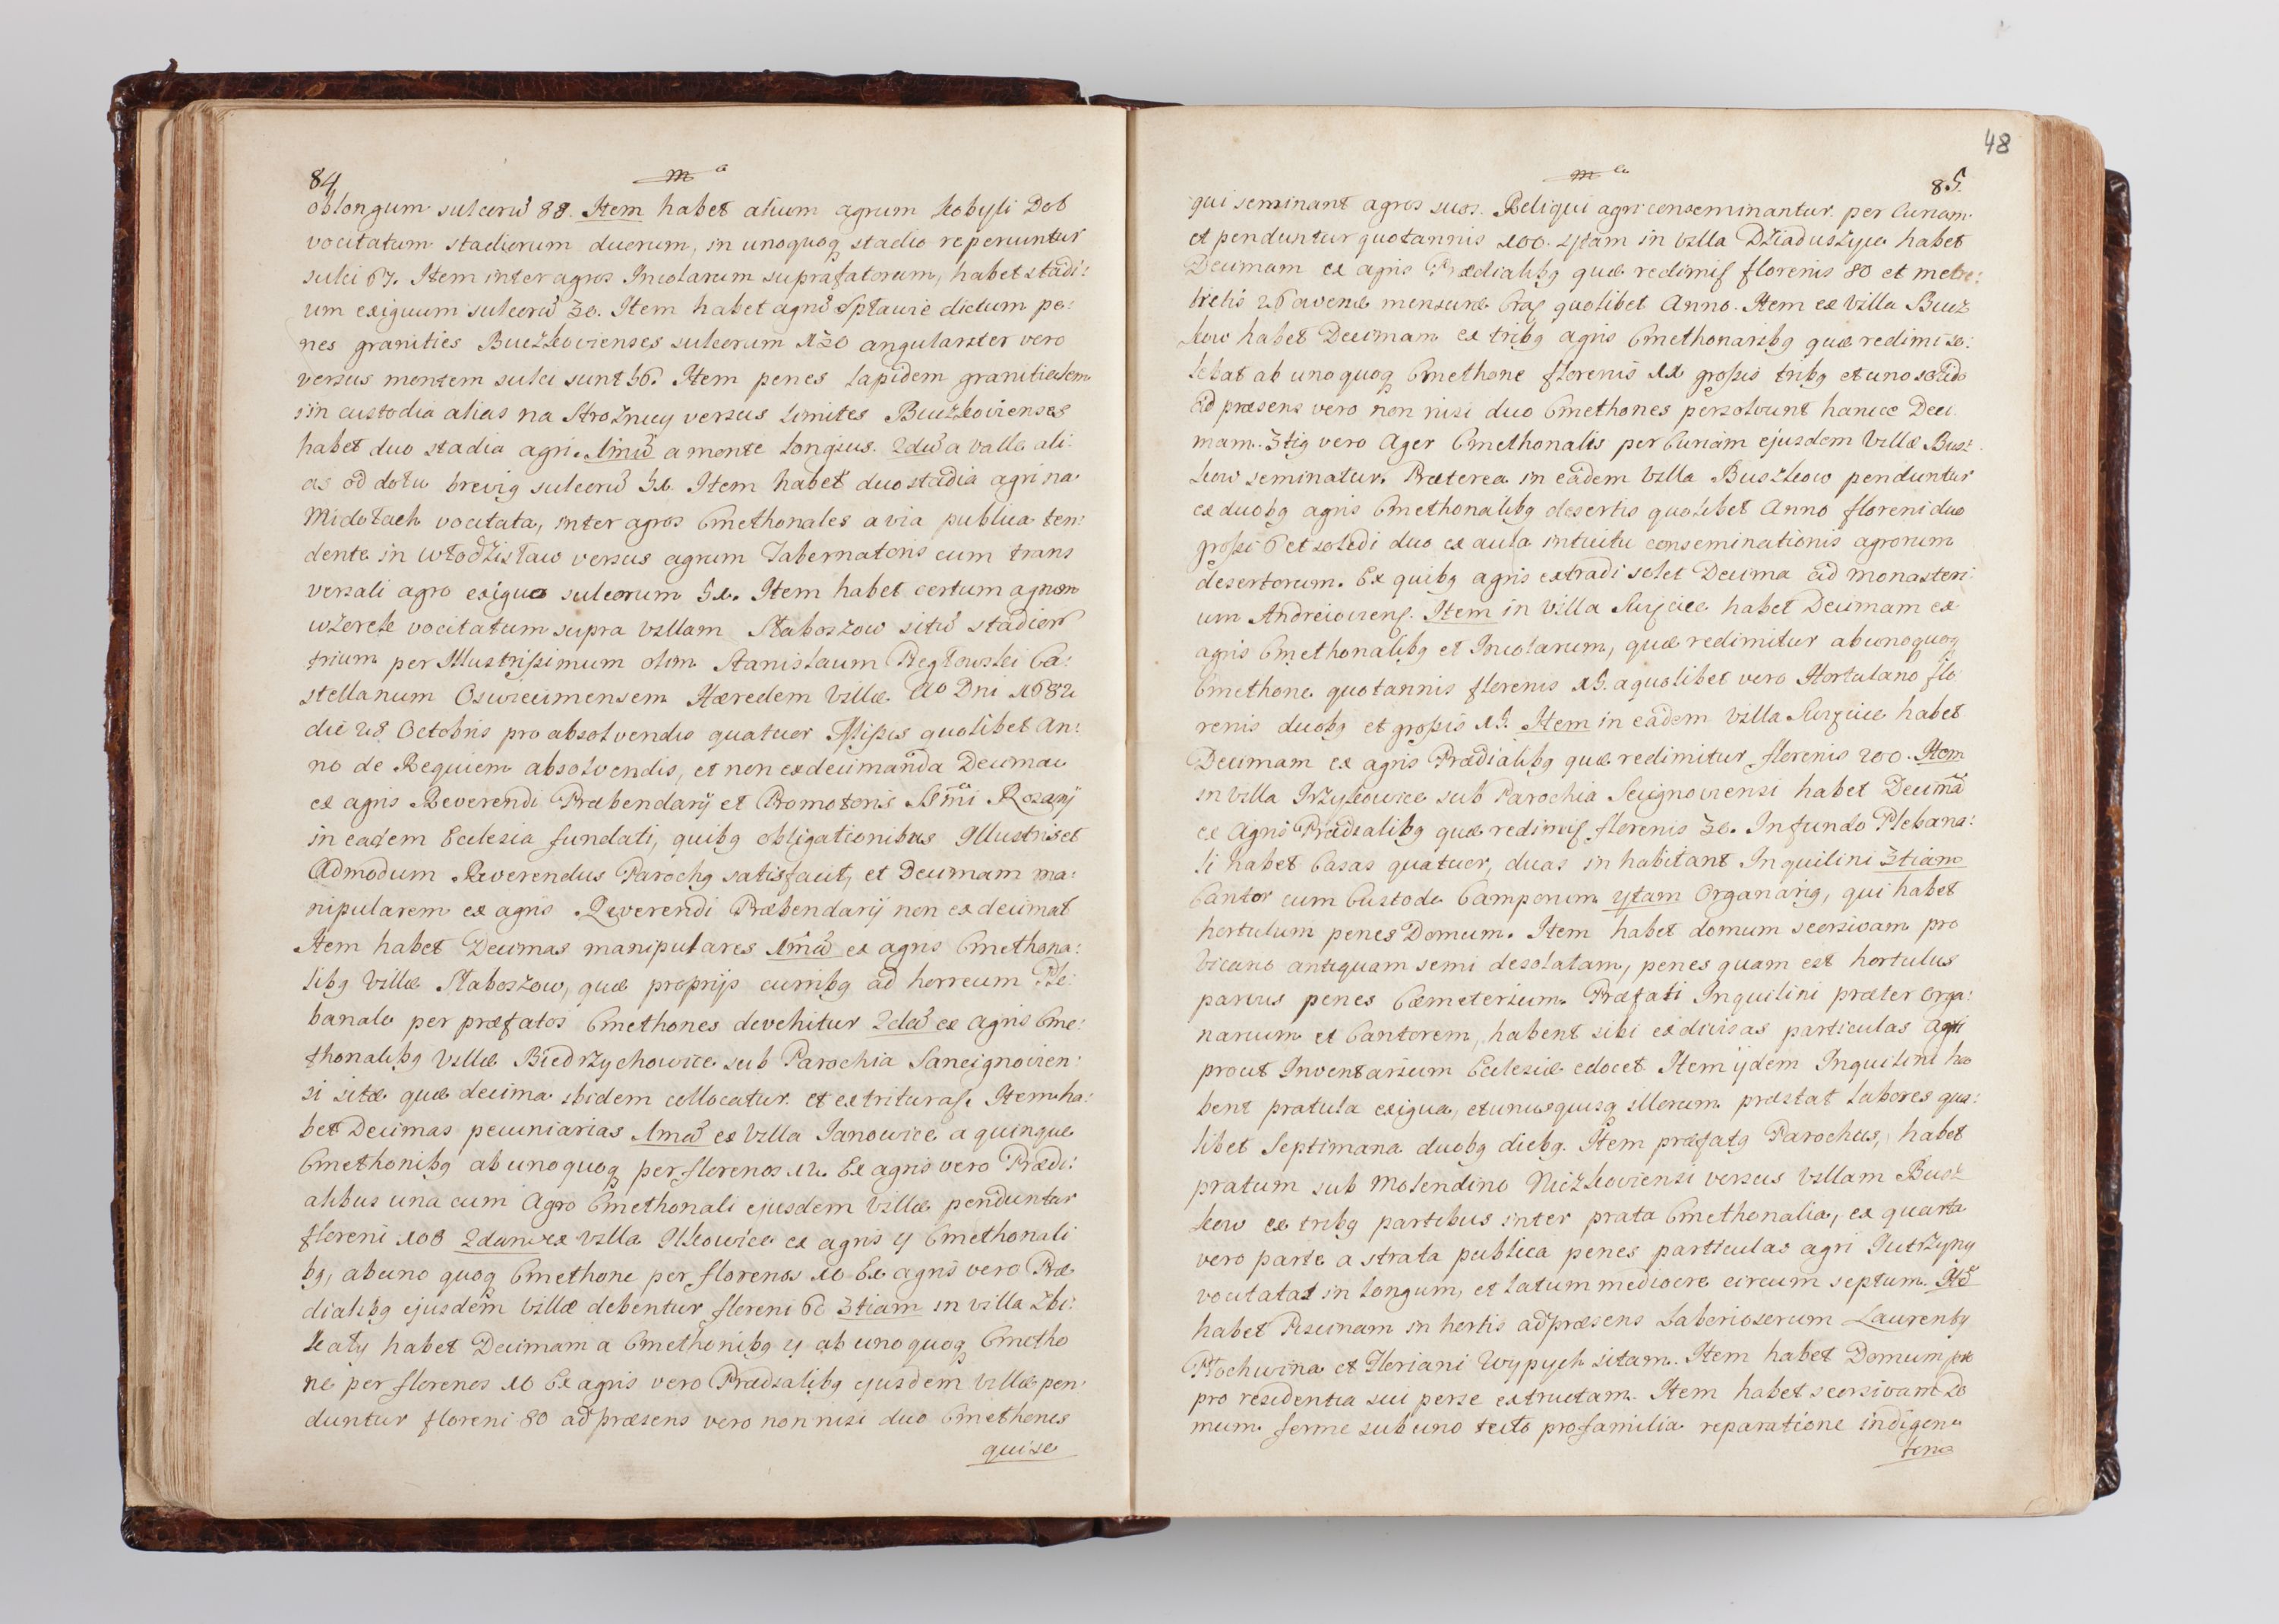 84
m a
oblongum sulcorũ 88. Item habet alium agrum kobyli Doł
vocitatum stadiorum duorum, in unoquoq stadio reperiuntur
sulci 67. Item inter agros Incolarum suprafatorum, habet stadi:
um exiguum sulcorũ 30. Item habet agrũ Spławie dictum pe:
nes granities Buszkovienses sulcorum 130 angulariter vero
versus montem sulci sunt 56. Item penes lapidem granitialem
in custodia alias na Strożnicy versus limites Buszkovienses
habet duo stadia agri. 1mũ a monte longius. 2dũ a valle ali:
as od dołu brevig sulcorũ 50. Item habet duo stadia agri na
Midołach vocitata, inter agros Cmethonales a via publica ten:
dente in Włodzisław versus agrum Tabernatoris cum trans
versali agro exiguo sulcorum 50. Item habet certum agrum
wżerek vocitatum supra villam Słaboszow sitũ stadiorũ
trium per Illustrissimum olim Stanislaum Ca:
stellanum Oswiecimensem Hæredem Villæ Ao Dni 1682
die 28 Octobris pro absolvendis quatuor Missis quolibet An:
no de Requiem absolvendis, et non exdecimanda Decima
ex agris Reverendi Præbendarij et Promotoris SSmi Rosarij
in eadem Ecclesia fundati, quibg obligationibus Illustris et
Admodum Reverendus Parochg satisfacit, et Decimam ma:
nipularem ex agris Reverendi Præbendarij non exdecimat
Item habet Decimas manipulares 1mũ ex agris Cmethona:
libg Villæ Słaboszow, quæ proprijs curribg ad horreum Ple:
banale per præfatos Cmethones devehitur 2dũ ex agris Cme:
thonalibg Villæ Biedrzychowice sub Parochia Sancignovien:
si sitæ quæ decima ibidem collocatur et extrituraʃ. Item ha:
bet Decimas pecuniarias 1mũ ex Villa Janowice a quinque
Cmethonibg ab unoquoq per florenos 12. Ex agris vero Prædi:
alibus una cum Agro Cmethonali ejusdem Villæ penduntur
floreni 108 2dum ex villa Ilkowice ex agris 4 Cmethonali
bg, ab uno quoq Cmethone per florenos 10 Ex agris vero Præ
dialibg ejusdem Villæ debentur floreni 60 3tiam in villa Zbi:
gały habet Decimam a Cmethonibg 4 ab unoquoq Cmetho
ne per florenos 10 Ex agris vero Prædialibg ejusdem Villæ pen:
duntur floreni 80 ad præsens vero non nisi duo Cmethones
qui se
48
m a
85.
qui seminant agros suos. Reliqui agri conseminantur per Curiam
et penduntur quotannis 100. 4tam in villa Dziaduszyce habet
Decimam ex agris Prædialibg quæ redimiʃ florenis 80 et metre:
tretis 26 avenæ mensuræ Craʃ quolibet Anno. Item ex Villa Busz
kow habet Decimam ex tribg agris Cmethonalibg quæ redimi so:
lebat ab unoquoq Cmethone florenis 11 grossis tribg et uno solido
ad præsens vero non nisi duo Cmethones persolvunt hancce Deci
mam. 3tig vero Ager Cmethonalis per Curiam ejusdem Villæ Busz
kow seminatur. Præterea in eadem Villa Buszkow penduntur
ex duobg agris Cmethonalibg desertis quolibet Anno floreni duo
grossi 6 et solidi duo ex aula intuitu conseminationis agrorum
desertorum. Ex quibg agris extradi solet Decima ad monasteri
um Andreiovienʃ. Item in Villa habet Decimam ex
agris Cmethonalibg et Incolarum, quæ redimitur ab unoquoq
Cmethone quotannis florenis 15. a quolibet vero Hortulano flo:
renis duobg et grossis 15. Item in eadem Villa habet
Decimam ex agris Prædialibg quæ redimitur florenis 200. Item
in Villa Irzykowice sub Parochia habet Decimã
ex Agris Prædialibg quæ redimiʃ florenis 30. In fundo Plebana:
li habet Casas quatuor, duas inhabitant Inquilini 3tiam
Cantor cum Custode Camporum 4tam Organarig, qui habet
hortulum penes Domum. Item habet domum seorsivam pro
Vicario antiquam semi desolatam, penes quam est hortulus
parvus penes Cæmeterium. Præfati Inquilini præter Orga:
narium et Cantorem, habent sibi exdivisas particulas agri
prout Inventarium Ecclesiæ edocet. Item ijdem Inquilini ha
bent pratula exigua, et unusquisq illorum præstat labores qua:
libet Septimana duobg diebg. Item præfatg Parochus, habet
pratum sub Molendino Niczkoviensi versus Villam Busz
kow ex tribg partibus inter prata Cmethonalia, ex quarta
vero parte a strata publica penes particulas agri Jutrzyny
vocitatas in longum, et latum mediocre circum septum. Itẽ
habet Piscinam in hortis ad præsens Laboriosorum Laurenty
Płochwina et Floriani Wypych sitam. Item habet Domum
pro residentia sui per se extructam. Item habet seorsivam Do
mum ferme sub uno tecto pro familia reparatione indigen
tem